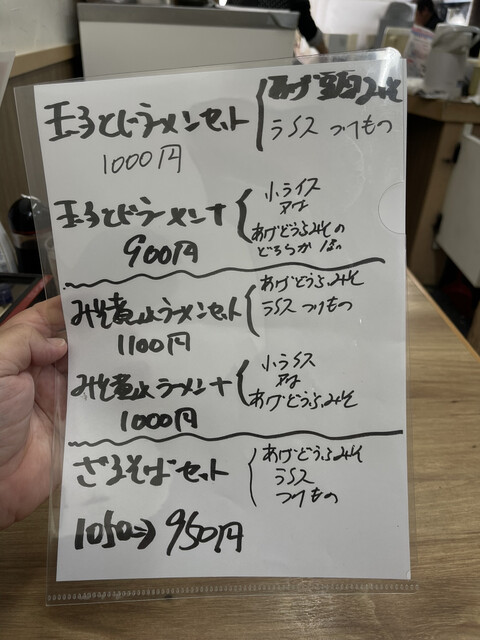 玉子とじラーメンセット
あげ豆肉みそ
ライス つけもの
1000円
玉子とじラーメン +
小ライス
or
あげどうふみその
どちらか 1つ
900円
みそ煮込ラーメンセット
あげどうふみそ
ライス つけもの
1100円
みそ煮込ラーメン +
小ライス
or
あげどうふみそ
1000円
ざるそばセット
あげどうふみそ
ライス
つけもの
1050→950円